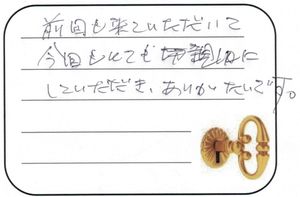 前回も来ていただいて
今回もとても親切に
していただき、ありがたいです。